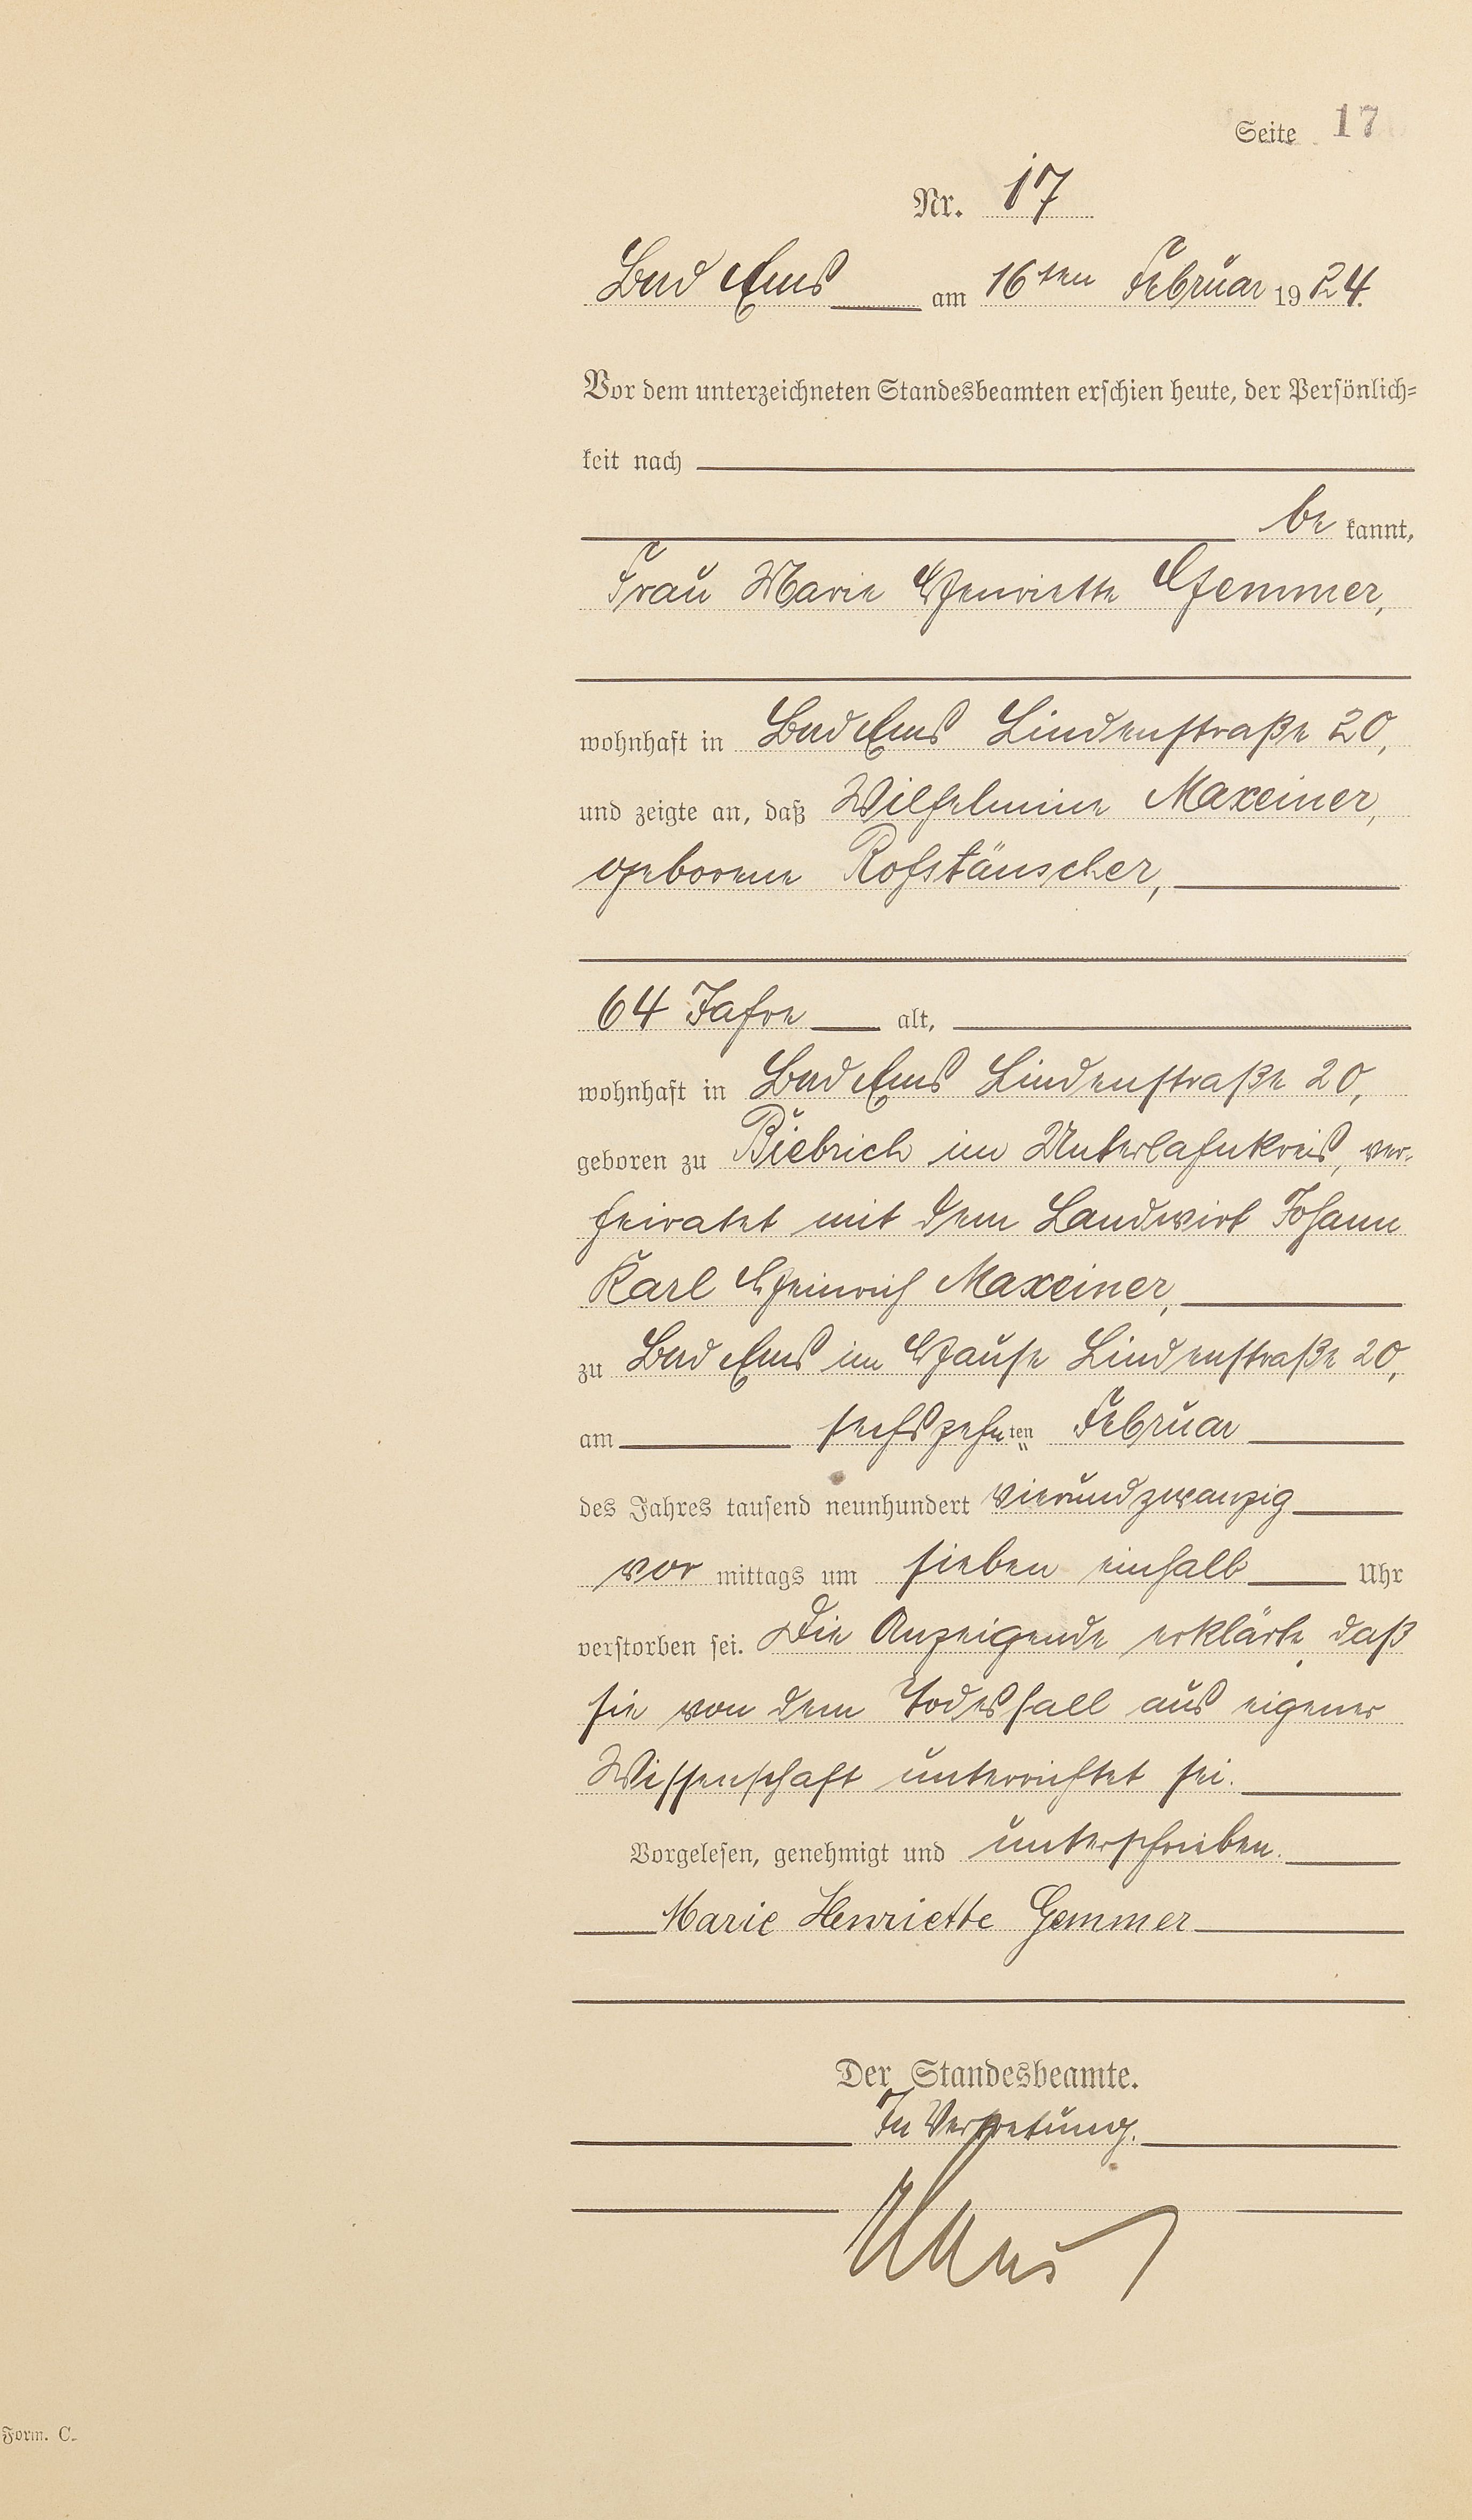 Seite 17
Nr. 17
Bad Ems am 16ten Februar 1924.
Vor dem unterzeichneten Standesbeamten erschien heute, der Persönlich=
keit nach
be kannt,
Frau Marie Henriette Gemmer,
wohnhaft in Bad Ems Lindenstraße 20,
und zeigte an, daß Wilhelmine Maxeiner,
geborene Roßtäuscher,
64 Jahre alt,
wohnhaft in Bad Ems Lindenstraße 20,
geboren zu Biebrich im Unterlahnkreis, ver-
heiratet mit dem Landwirt Johann
Karl Heinrich Maxeiner,
zu Bad Ems im Hause Lindenstraße 20,
am sechszehnten Februar
des Jahres tausend neunhundert vierundzwanzig
vor mittags um sieben einhalb Uhr
verstorben sei. Die Anzeigende erklärte, daß
sie von dem Todesfall aus eigener
Wissenschaft unterrichtet sei.
Vorgelesen, genehmigt und unterschrieben.
Marie Henriette Gemmer
Der Standesbeamte.
In Vertretung.
Form. C.